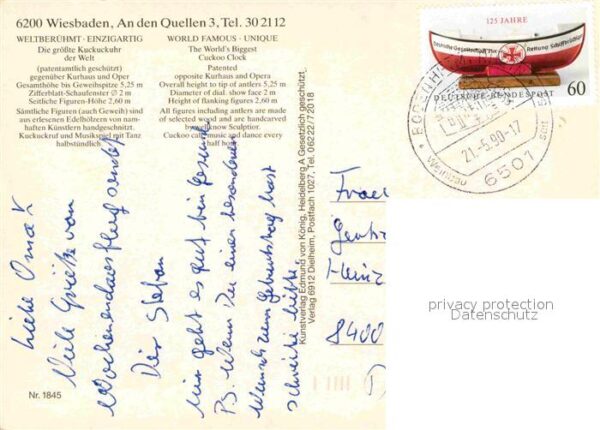 6200 Wiesbaden, An den Quellen 3, Tel. 30 2112
WELTBERÜHMT · EINZIGARTIG
Die größte Kuckuckuhr
der Welt
(patentamtlich geschützt)
gegenüber Kurhaus und Oper
Gesamthöhe bis Geweihspitze 5,25 m
Zifferblatt-Schaufenster ∅ 2 m
Seitliche Figuren-Höhe 2,60 m
Sämtliche Figuren (auch Geweih) sind
aus erlesenen Edelhölzern von nam-
haften Künstlern handgeschnitzt.
Kuckucksruf & Musikspiel mit Tanz
halbstündlich
WORLD FAMOUS · UNIQUE
The World's Biggest
Cuckoo Clock
Patented
opposite Kurhaus and Opera
Overall height to tip of antlers 5,25 m
Diameter of dial show face 2 m
Height of flanking figures 2,60 m
All figures including antlers are made
of selected wood and are handcarved
by well-know Sculptior.
Cuckoo call, music and dance every
half hour
Liebe Oma
Viele Grüße von
Wochenendausflug sendet
Dir Stefan
mir geht es gut bin gesund
P.S. Wenn Du einen besonderen
Wunsch zum Geburtstag hast
schreibe bitte
Nr. 1845
Kunstverlag Edmund von König, Heidelberg A Gesetzlich geschützt.
Verlag 6912 Dielheim, Postfach 1027, Tel. 06222/72018
125 JAHRE
Deutsche Gesellschaft zur Rettung Schiffbrüchiger
DEUTSCHE BUNDESPOST
60
21.-5.90-17
6501
Frau
Heinz
8400
privacy protection
Datenschutz